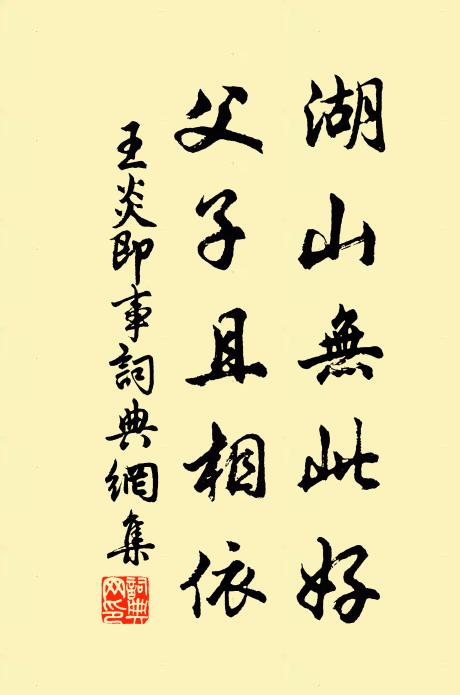 湖山無此好
父子且相依
王炎即事詞典網集
詞典网印